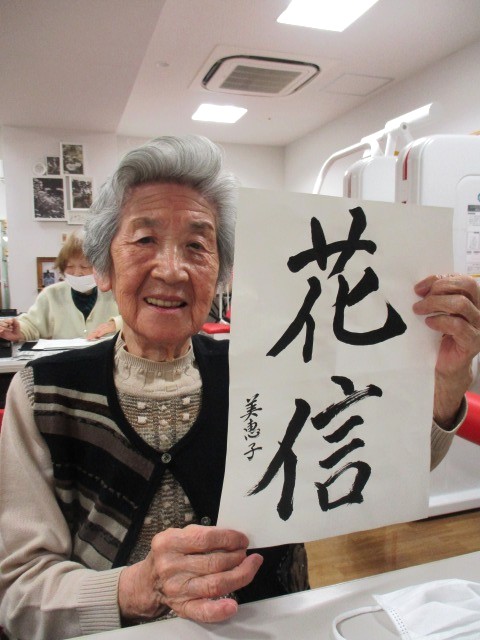 花信
美恵子